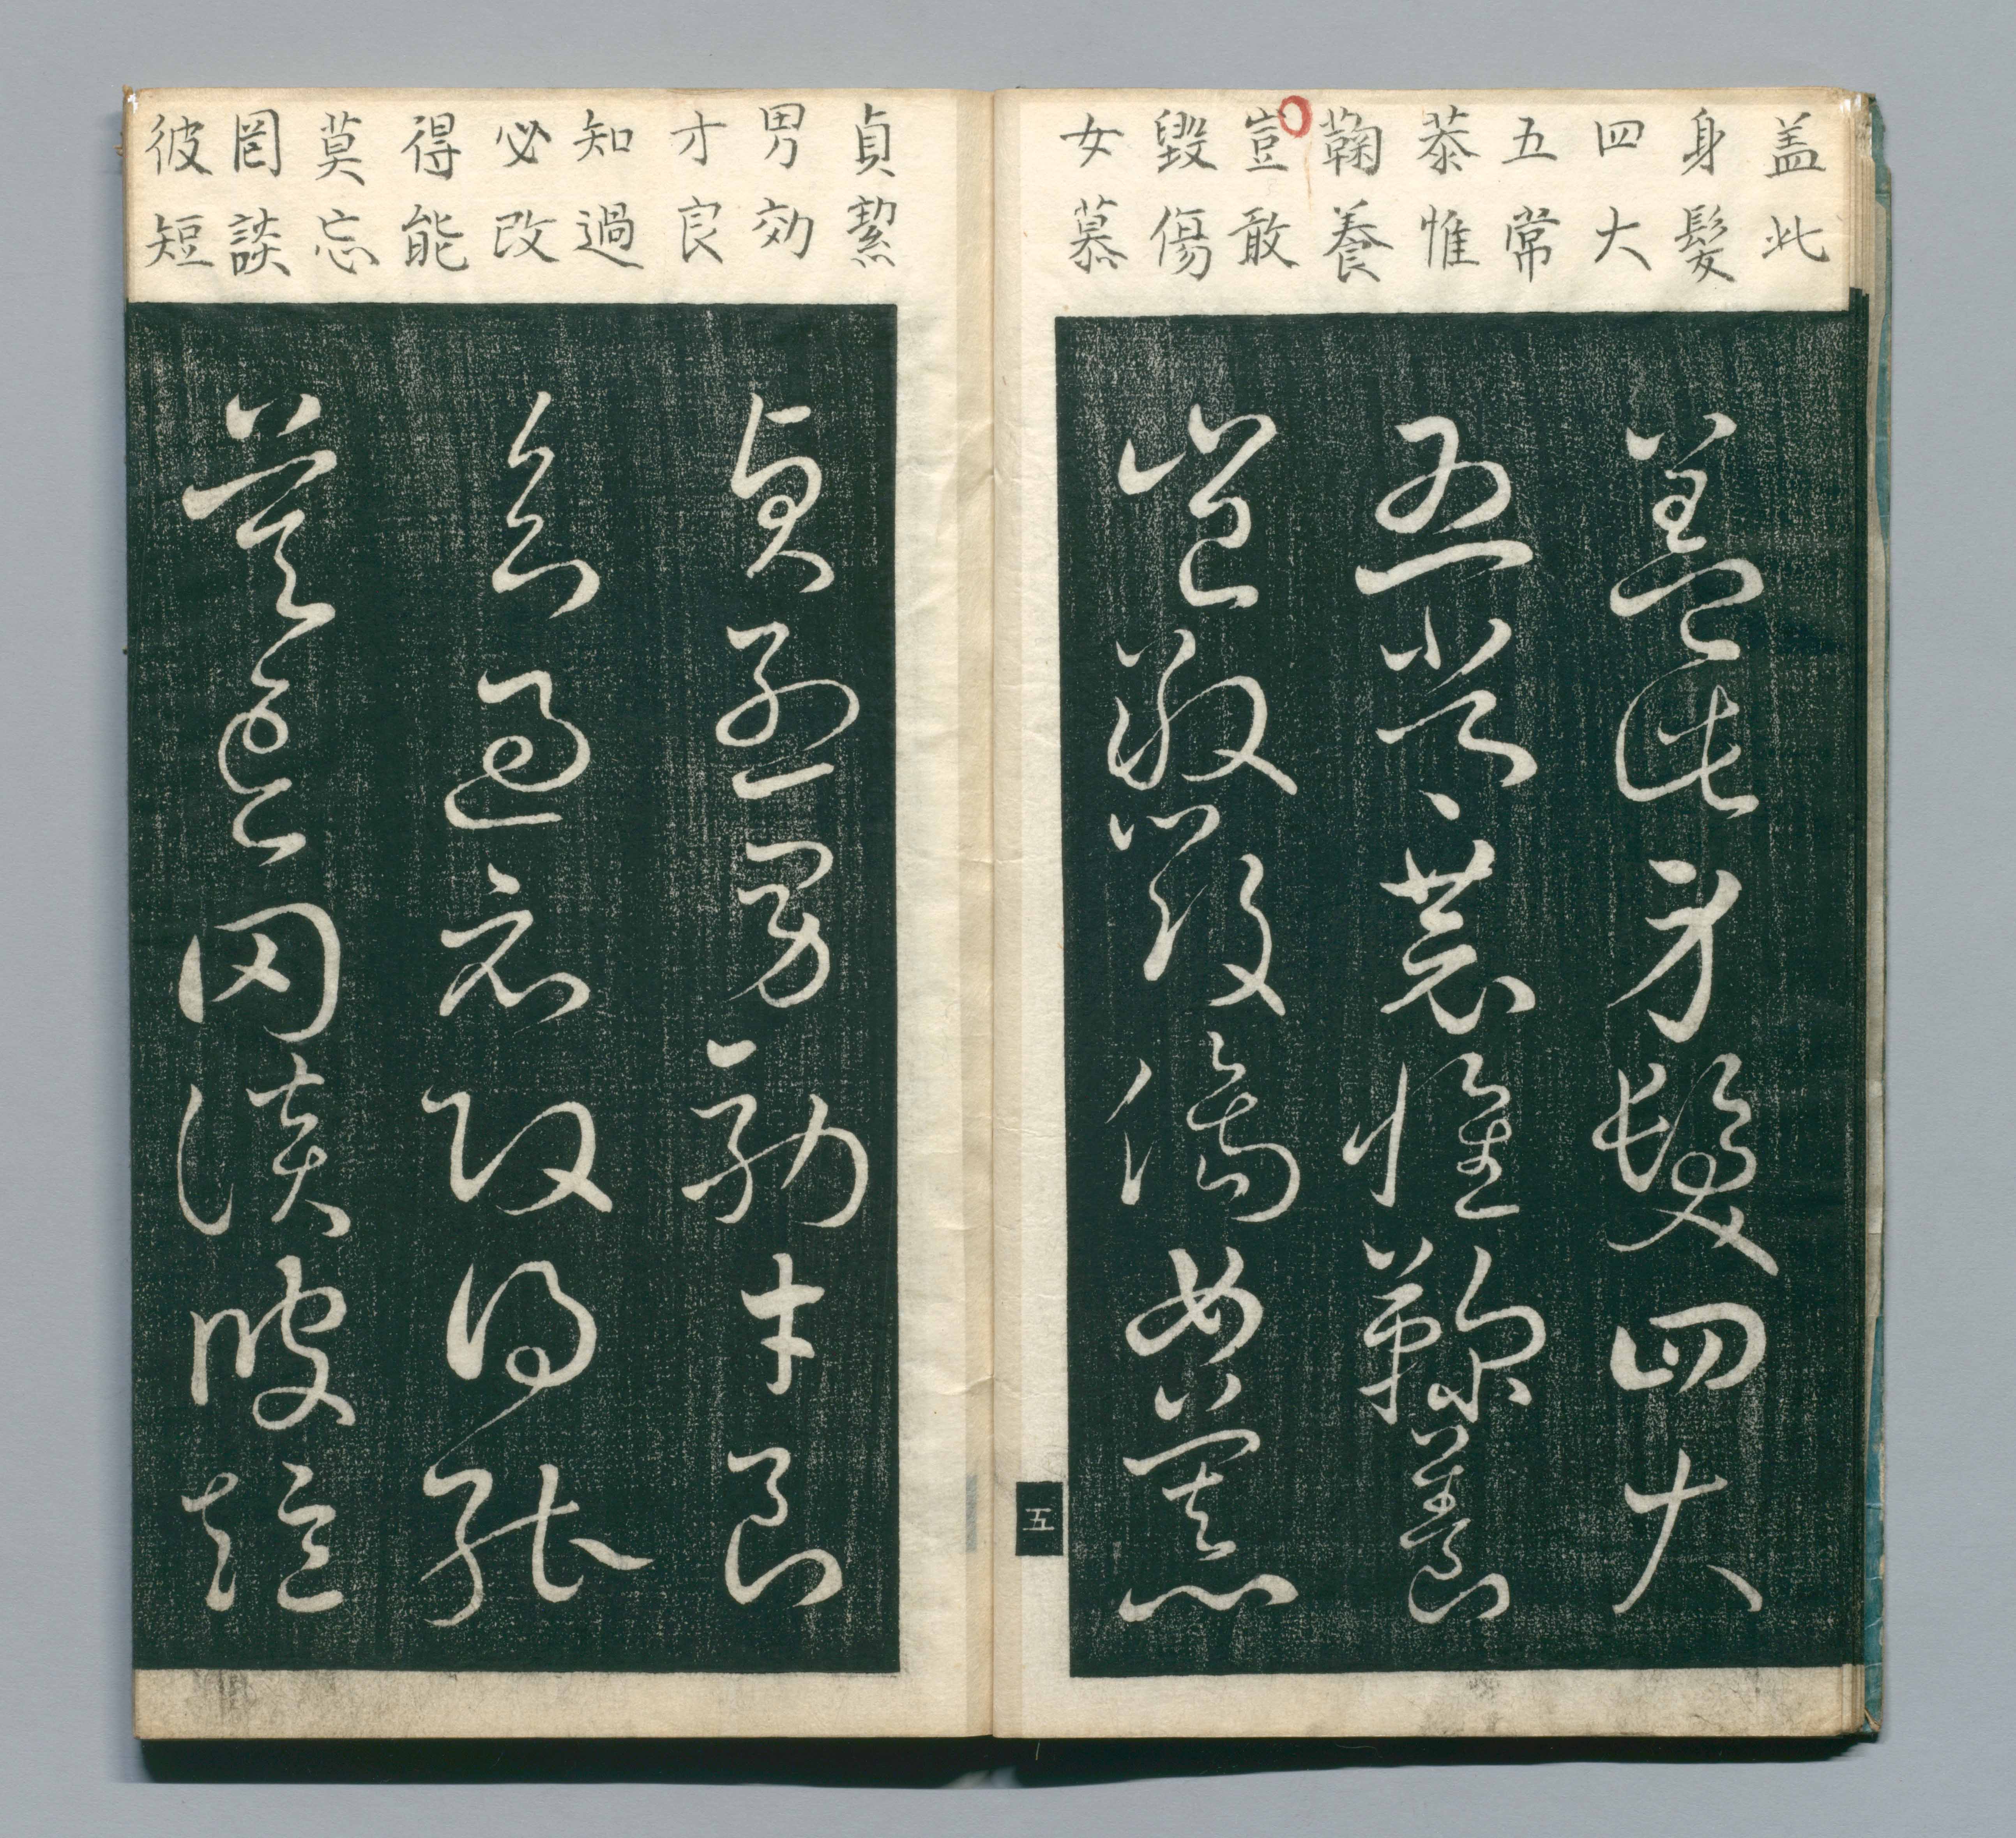 盖此
身髮
四大
五常
恭惟
鞠養
豈敢
毀傷
女慕
盖此身髮四大
五常恭惟鞠養
豈敢毀傷女慕
五
貞絜
男効
才良
知過
必改
得能
莫忘
罔談
彼短
貞烈男効才良
知過必改得能
莫忘罔談彼短